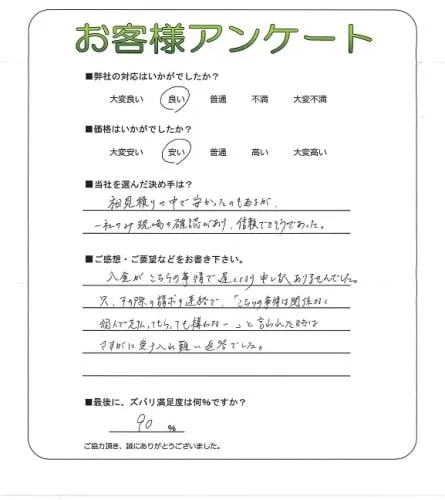 お客様アンケート
■弊社の対応はいかがでしたか？
大変良い 良い 普通 不満 大変不満
■価格はいかがでしたか？
大変安い 安い 普通 高い 大変高い
■当社を選んだ決め手は？
相見積りの中で安かったのもあるが、
一社のみ現場の確認があり、信頼できそうであった。
■ご感想・ご要望などをお書き下さい。
入金がこちらの事情で遅くなり申し訳ありませんでした。
又、その際の請求の連絡で、「こちらの事情は関係なく
個人で支払ってもらっても構わない」と言われた時は
さすがに受け入れ難い返答でした。
■最後に、ズバリ満足度は何％ですか？
90 ％
ご協力頂き、誠にありがとうございました。